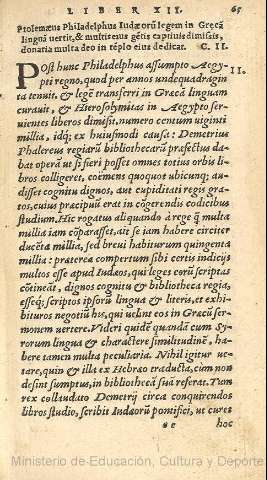 LIBER XII. 65
Ptolemæus Philadelphus Iudæorũ legem in Græcã
linguã uertit, & multis eius gẽtis captiuis dimissis,
donaria multa deo in tẽplo eius dedicat. C. II.
POst hunc Philadelphus assumpto Aegy-
pti regno, quod per annos undequadragin II.
ta tenuit, & legẽ transferri in Græcã linguam
curauit, & Hierosolymitas in Aegypto ser-
uientes liberos dimisit, numero centum uiginti
millia, idq; ex huiusmodi causa: Demetrius
Phalereus regiarũ bibliothecarũ præfectus da-
bat operã ut si fieri posset omnes totius orbis li-
bros colligeret, coëmens quoquot ubicunq; au-
disset cognitu dignos, aut cupiditati regis gra-
tos, cuius præcipuũ erat in cõgerendis codicibus
studium. Hic rogatus aliquando à rege q̃ multa
millia iam cõparasset, ait se iam habere circiter
ducẽta millia, sed breui habiturum quingenta
millia: præterea compertum sibi certis indicijs
multos esse apud Iudæos, qui leges eorũ scriptas
cõtineãt, dignos cognitu & bibliotheca regia,
esseq; scriptos ipsorũ lingua & literis, et exhi-
bituros negotiũ his, qui uelint eos in Græcũ ser-
monem uertere. Videri quidẽ quandã cum Sy-
rorum lingua & charactere similitudinẽ, ha-
bere tamen multa peculiaria. Nihil igitur ue-
tare, quin & illa ex Hebræo traducta, cum non
desint sumptus, in bibliothecã suã referat. Tum
rex collaudato Demetrij circa conquirendos
libros studio, scribit Iudæorũ pontifici, ut cures
ee hoc
Ministerio de Educación, Cultura y Deporte